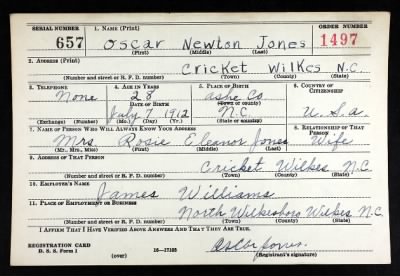 SERIAL NUMBER 1. NAME (Print) ORDER NUMBER
657 Oscar Newton Jones 1497
(First) (Middle) (Last)
2. ADDRESS (Print)
Cricket Wilkes N.C.
(Number and street or R. F. D. number) (Town) (County) (State)
3. TELEPHONE 4. AGE IN YEARS 5. PLACE OF BIRTH 6. COUNTRY OF CITIZENSHIP
None 28 Ashe Co.
DATE OF BIRTH (Town or county)
July 7 1912 N.C. U.S.a.
(Exchange) (Number) (Mo.) (Day) (Yr.) (State or country)
7. NAME OF PERSON WHO WILL ALWAYS KNOW YOUR ADDRESS 8. RELATIONSHIP OF THAT PERSON
Mrs. Rosie Eleanor Jones Wife
(Mr., Mrs., Miss) (First) (Middle) (Last)
9. ADDRESS OF THAT PERSON
Cricket Wilkes N.C.
(Number and street or R. F. D. number) (Town) (County) (State)
10. EMPLOYER'S NAME
James Williams
11. PLACE OF EMPLOYMENT OR BUSINESS
North Wilkesboro Wilkes N.C.
(Number and street or R. F. D. number) (Town) (County) (State)
I AFFIRM THAT I HAVE VERIFIED ABOVE ANSWERS AND THAT THEY ARE TRUE.
REGISTRATION CARD
D. S. S. Form 1 (over) 16—17105 Oscar Jones
(Registrant's signature)